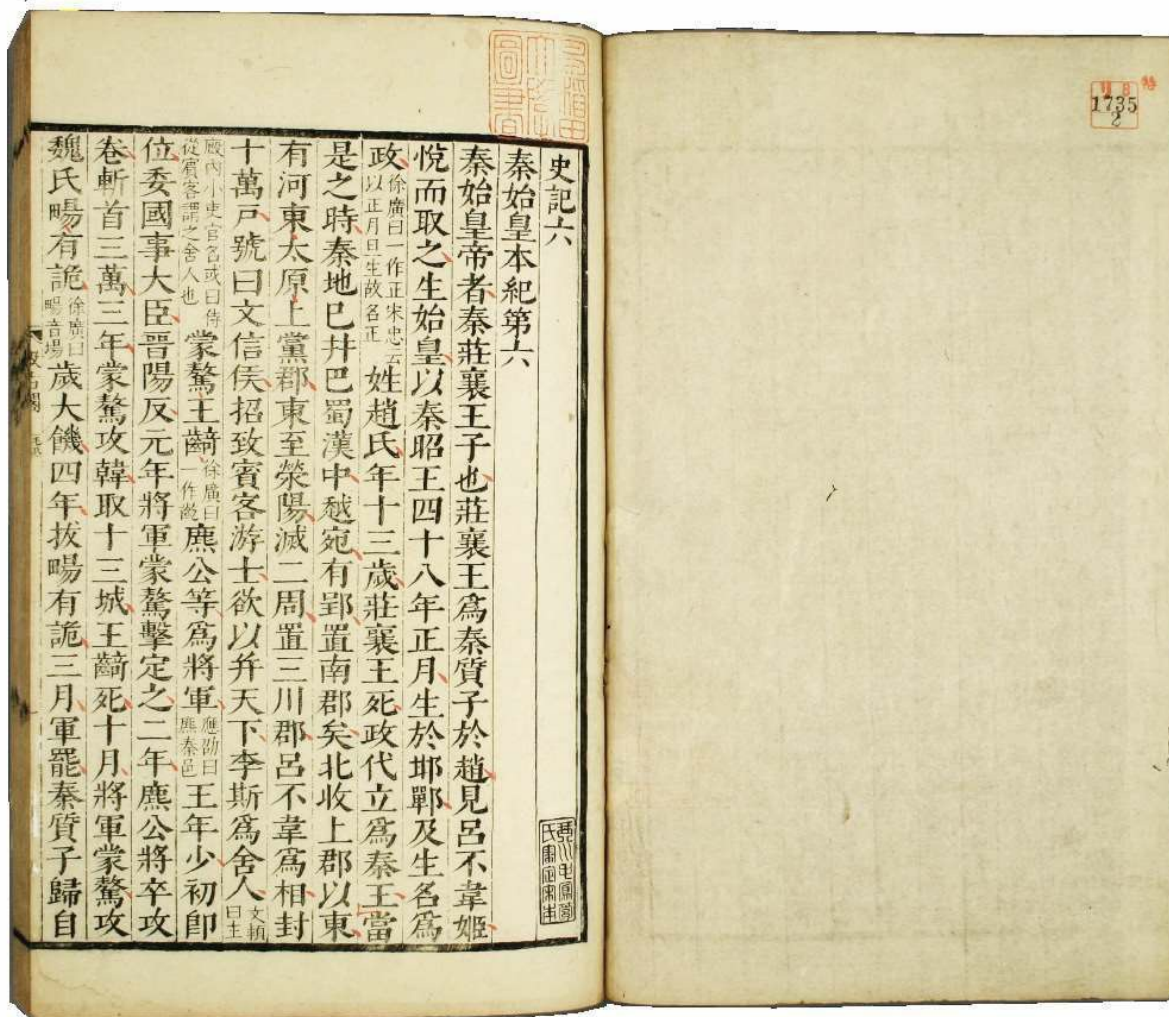 1735
2
史記六
秦始皇本紀第六
秦始皇帝者秦莊襄王子也莊襄王爲秦質子於趙見呂不韋姬
悅而取之生始皇以秦昭王四十八年正月生於邯鄲及生名爲
政徐廣曰一作正宋忠云以正月旦生故名正姓趙氏年十三歲莊襄王死政代立爲秦王當
是之時秦地已幷巴蜀漢中越宛有郢置南郡矣北收上郡以東
有河東太原上黨郡東至滎陽滅二周置三川郡呂不韋爲相封
十萬戶號曰文信侯招致賓客游士欲以幷天下李斯爲舍人文穎曰主
廄內小吏官名或曰侍從賓客謂之舍人也蒙驁王齮徐廣曰一作齕麃公等爲將軍應劭曰麃秦邑王年少初卽
位委國事大臣晉陽反元年將軍蒙驁擊定之二年麃公將卒攻
卷斬首三萬三年蒙驁攻韓取十三城王齮死十月將軍蒙驁攻
魏氏暘有詭徐廣曰暘音場歲大饑四年拔暘有詭三月軍罷秦質子歸自
汲古閣